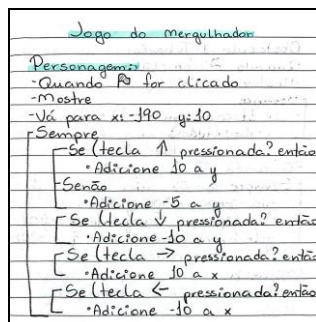 Jogo do mergulhador
Personagem:
-Quando 🏳 for clicado
-Mostre
-Vá para x: -190 y: 10
Sempre
Se (tecla ↑ pressionada? então
•Adicione 10 a y
Senão
•Adicione -5 a y
Se (tecla ↓ pressionada? então
•Adicione -10 a y
Se (tecla → pressionada? então
•Adicione 10 a x
Se (tecla ← pressionada? então
•Adicione -10 a x